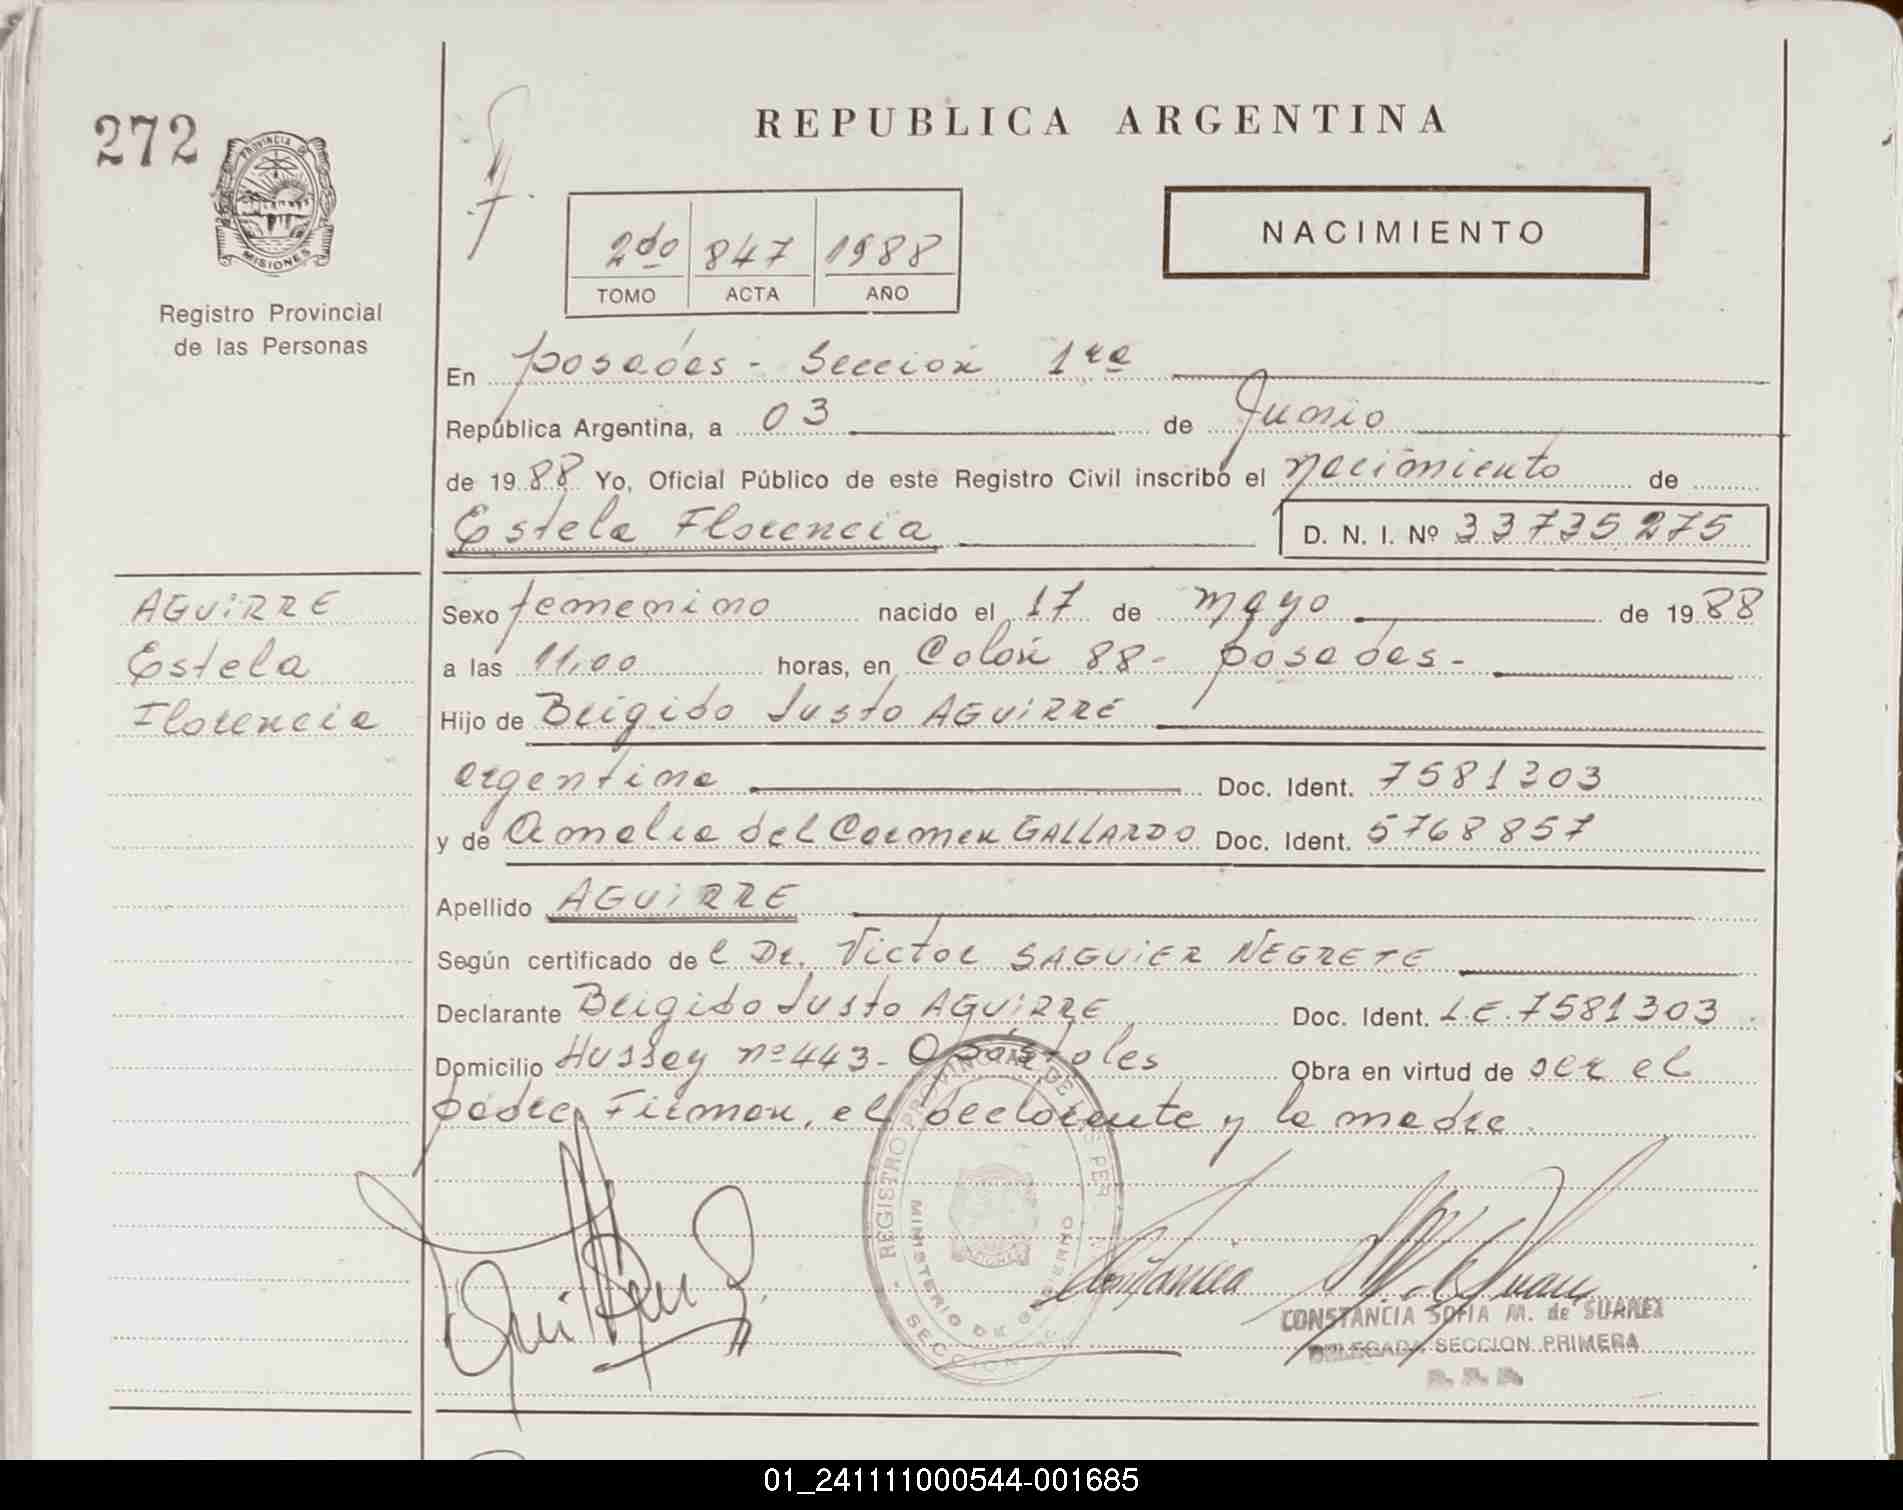 272
PROVINCIA DE
MISIONES
Registro Provincial
de las Personas
REPUBLICA ARGENTINA
2do 847 1988
TOMO ACTA AÑO
NACIMIENTO
En Posadas - Sección 1ra
República Argentina, a 03 de Junio
de 1988 Yo, Oficial Público de este Registro Civil inscribo el nacimiento de
Estela Florencia D. N. I. Nº 33735275
AGUIRRE
Estela
Florencia
Sexo femenino nacido el 17 de mayo de 1988
a las 11,00 horas, en Colón 88 - Posadas -
Hijo de Brigido Justo AGUIRRE
argentina Doc. Ident. 7581303
y de Amalia del Carmen GALLARDO Doc. Ident. 5768857
Apellido AGUIRRE
Según certificado del Dr. Victor SAGUIER NEGRETE
Declarante Brigido Justo AGUIRRE Doc. Ident. L.E. 7581303
Domicilio Hussay nº 443 - Apóstoles Obra en virtud de ser el
padre. Firman, el declarante y la madre.
REGISTRO PROVINCIAL DE LAS PER
MINISTERIO DE GOBIERNO
SECCION
CONSTANCIA SOFIA M. de SUAREZ
DELEGADA SECCION PRIMERA
01_241111000544-001685